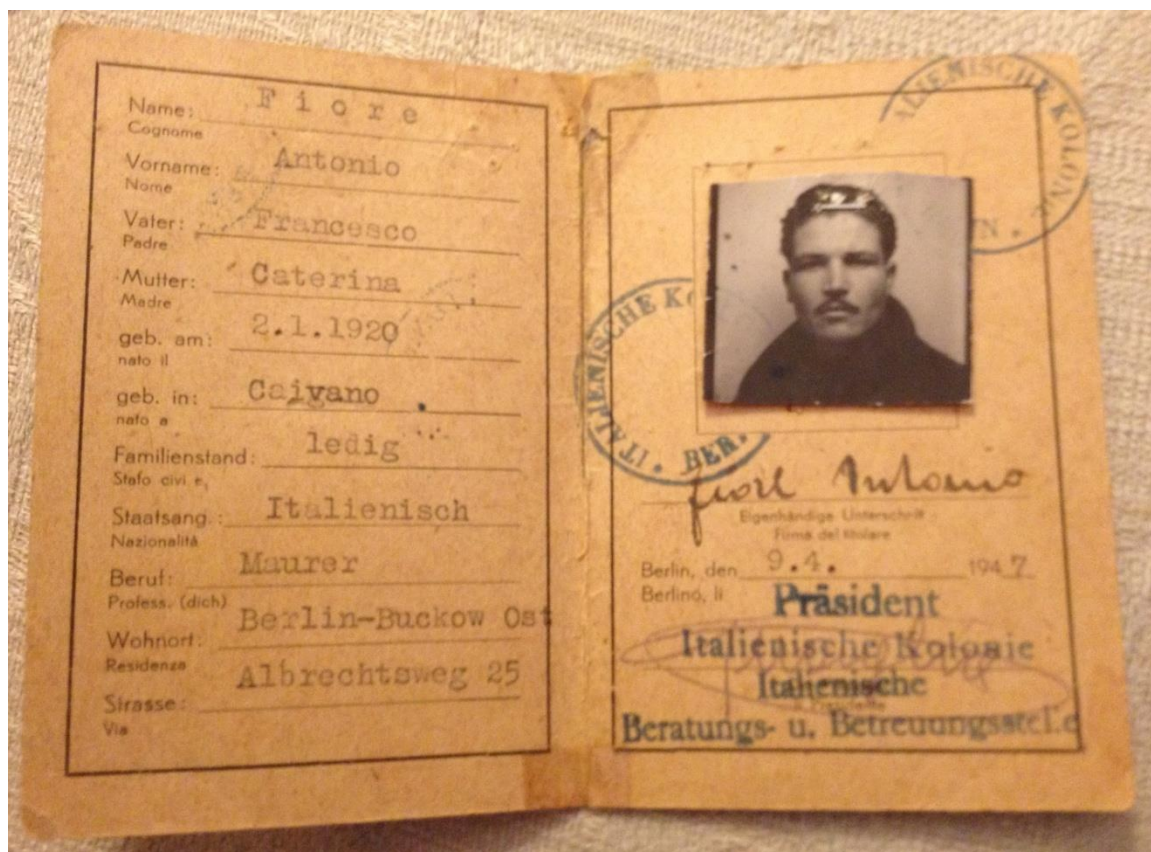 Name: Fiore
Cognome
Vorname: Antonio
Nome
Vater: Francesco
Padre
Mutter: Caterina
Madre
geb. am: 2.1.1920
nato il
geb. in: Caivano
nato a
Familienstand: ledig
Stato civi e,
Staatsang.: Italienisch
Nazionalità
Beruf: Maurer
Profess. (dich)
Wohnort: Berlin-Buckow Ost
Residenza
Strasse: Albrechtsweg 25
Via
ALIENISCHE KOLONIE
ITALIENISCHE KO
BER
Fiore Antonio
Eigenhändige Unterschrift
Firma del titolare
Berlin, den 9.4. 1947
Berlino, li
Präsident
Italienische Kolonie
Italienische
Beratungs- u. Betreuungsstelle